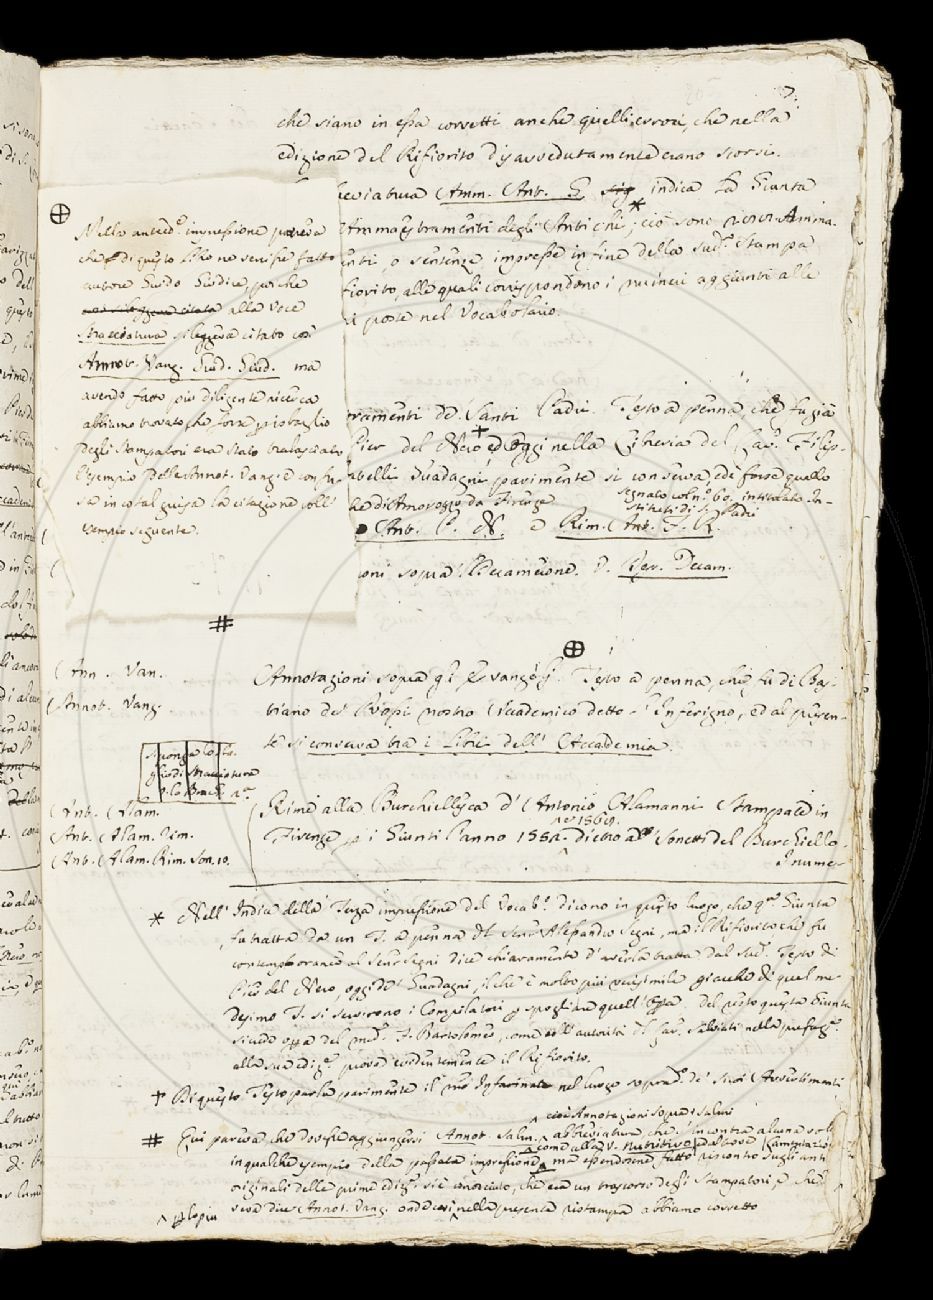 7.
che siano in essa corretti anche quelli errori, che nella
edizione del Rifiorito disavvedutamente erano scorsi.
breviatura Amm. Ant. G. indica la Giunta
Ammaestramenti degli Antichi *, cioè sono
enti, o sentenze impresse in fine della sud.ª Stampa
fiorito, alle quali corrispondono i numeri aggiunti alle
poste nel Vocabolario.
⊕
Nella anteced.e impressione pareva
che di questo libro ne venisse fatto
autore Guido Giudice, perchè
alla Voce
Stracciatura si leggeva citato così
Annot. Vang. Guid. Giud. ma
avendo fatto più diligente ricerca
abbiamo trovato che forse per isbaglio
degli Stampatori era stato tralasciato
l'esempio delle Annot. Vang. e confu-
sa in cotal guisa la citazione coll'
esempio seguente.
tramenti de' Santi Padri. Testo a penna, che fu già
Pier del Nero + ed oggi nella Libreria del Sav. Filip-
Guadagni parimente si conserva, ed è forse quello
di Amoretto da Firenze
segnato col n.º 60. intitolato In-
stituti di S. Padri
Ant. P. N. e Rim. Ant. F. R.
oni sopra il Decamerone. V. Decam.
#
⊕
Ann. Van.
Annot. Vang.
Annotazioni sopra gl' Evangelj. Testo a penna, che fu di Bas-
tiano de' Rossi nostro Accademico detto l' Inferigno, ed al presen-
te si conserva tra i Libri dell' Accademia.
Ant. Alam.
Ant. Alam. rim.
Ant. Alam. Rim. Son. 19.
Rime alla Burchiellesca d' Antonio Alamanni Stampate in
Firenze p i Giunti l'anno 1552. dietro a' Sonetti del Burchiello.
I nume-
* Nell' Indice della Terza impressione del Vocab.º dicono in questo luogo, che q.ta Giunta
fu tratta da un T. a penna del Sen.r Alessandro Segni, ma il Rifiorito che fu
contemporaneo al Sen.r Segni dice chiaramente d' averla tratta dal sud.º Testo di
Pier del Nero, oggi de' Guadagni, il che è molto più verisimile giacchè di quel me-
desimo T. si servirono i Compilatori p spogliare quell' Opera. Del resto questa Giunta
si vede opera del med.º F. Bartolomeo, come coll' autorità del Cav. Salviati nella prefaz.e
alla sua ediz.e prova evidentemente il Rifiorito.
+ Di questo Testo parla parimente il Infarinato nel luogo soprad.º de' suoi Avvertimenti
cioè Annotazioni sopra i Salmi
# Qui pareva che dovesse aggiungersi Annot. Salm. abbreviatura, che s'incontra alcuna volta
come alla V. Nutritivo
in qualche esempio della passata impressione, ma essendosene fatto riscontro sugli anti
originali delle prime ediz.i si è conosciuto, che era un trascorso degli Stampatori, e che
vera dire Annot. Vang. onde così nella presente ristampa abbiamo corretto